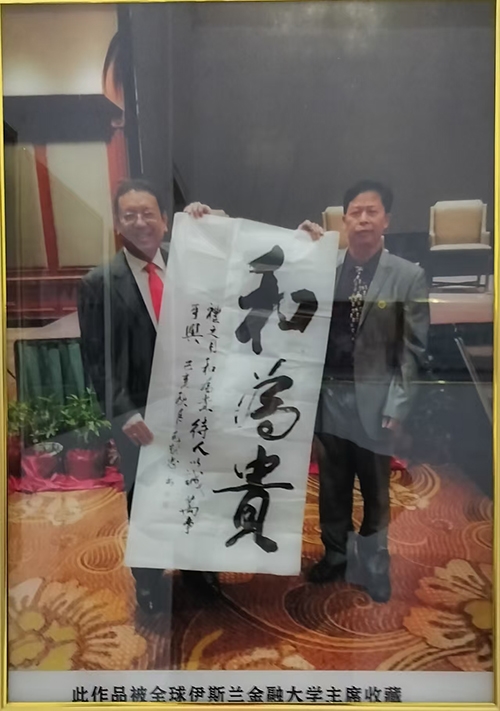 和為貴
禮之用和為貴待人以誠萬事
可興
此作品被全球伊斯兰金融大学主席收藏